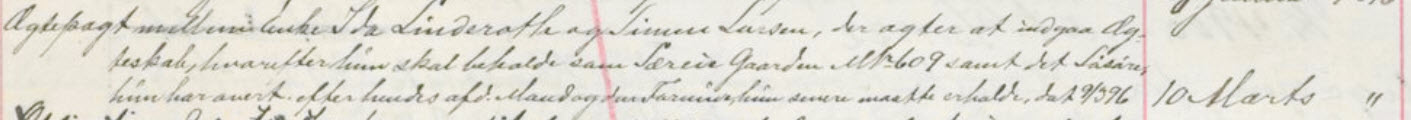 Ægtepagt mellem Enke Ida Linderoth og Simen Larsen, der agter at indgaa Æg-
teskab, hvorefter hun skal beholde som Særeie Gaarden M№ 609 samt det Løsøre,
hun har overt. efter hendes afd. Mand og den Formue hun senere maatte erholde, dat 9/3 96 10 Marts "